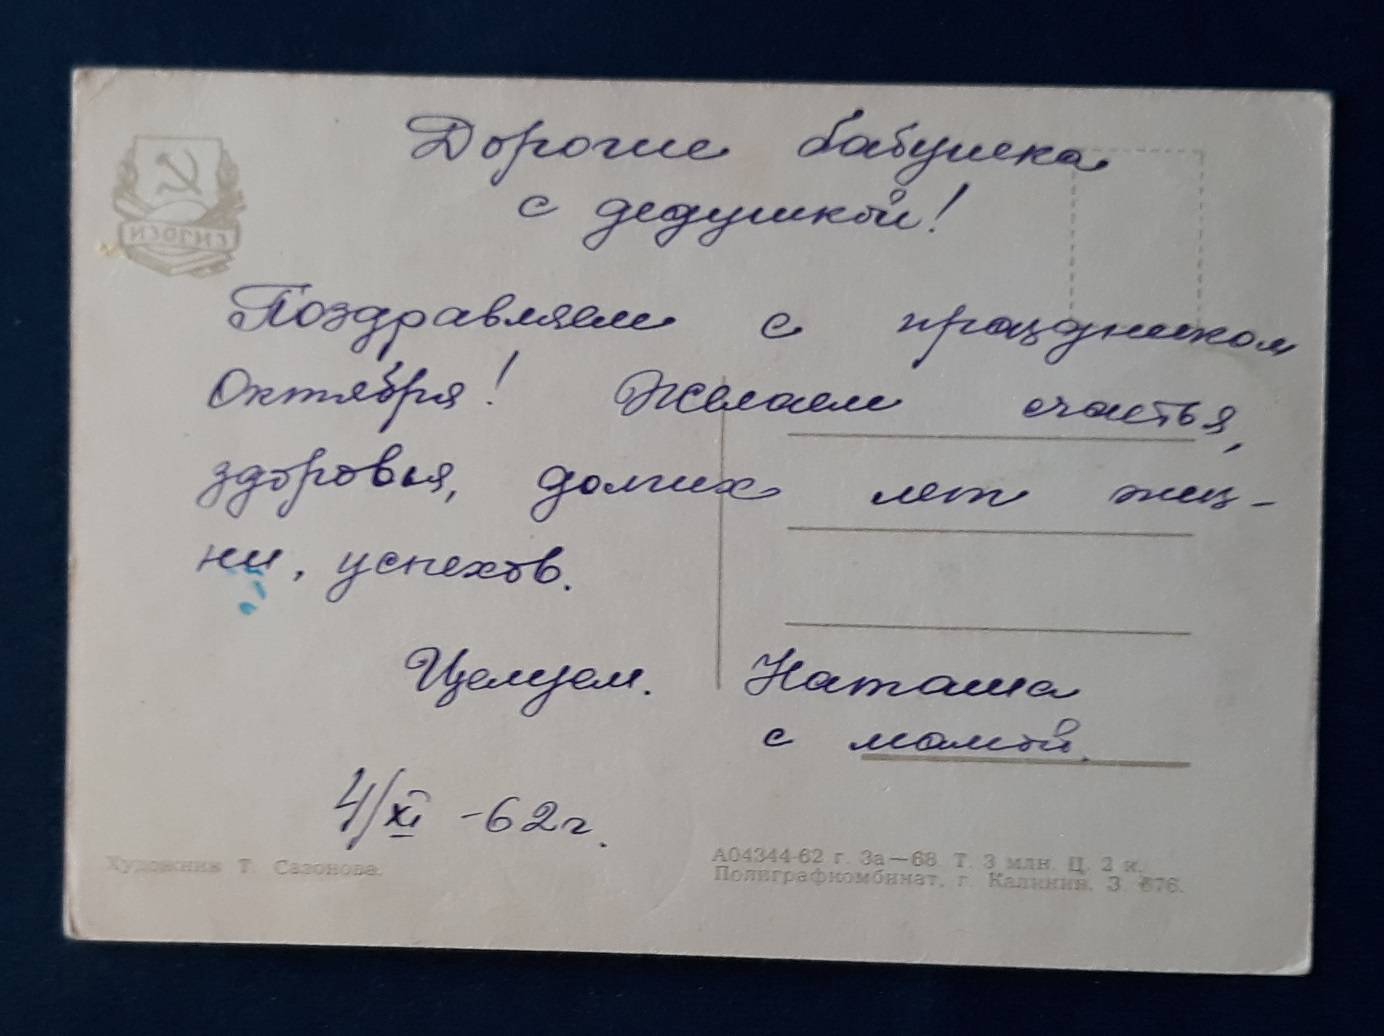 Дорогие бабушка
с дедушкой!
ИЗОГИЗ
Поздравляем с праздником
Октября! Желаем счастья,
здоровья, долгих лет жиз-
ни, успехов.
Целуем. Наташа
с мамой.
4/XI -62г.
Художник Т. Сазонова.
А04344-62 г. 3а—68. Т. 3 млн. Ц. 2 к.
Полиграфкомбинат, г. Калинин. З. 676.